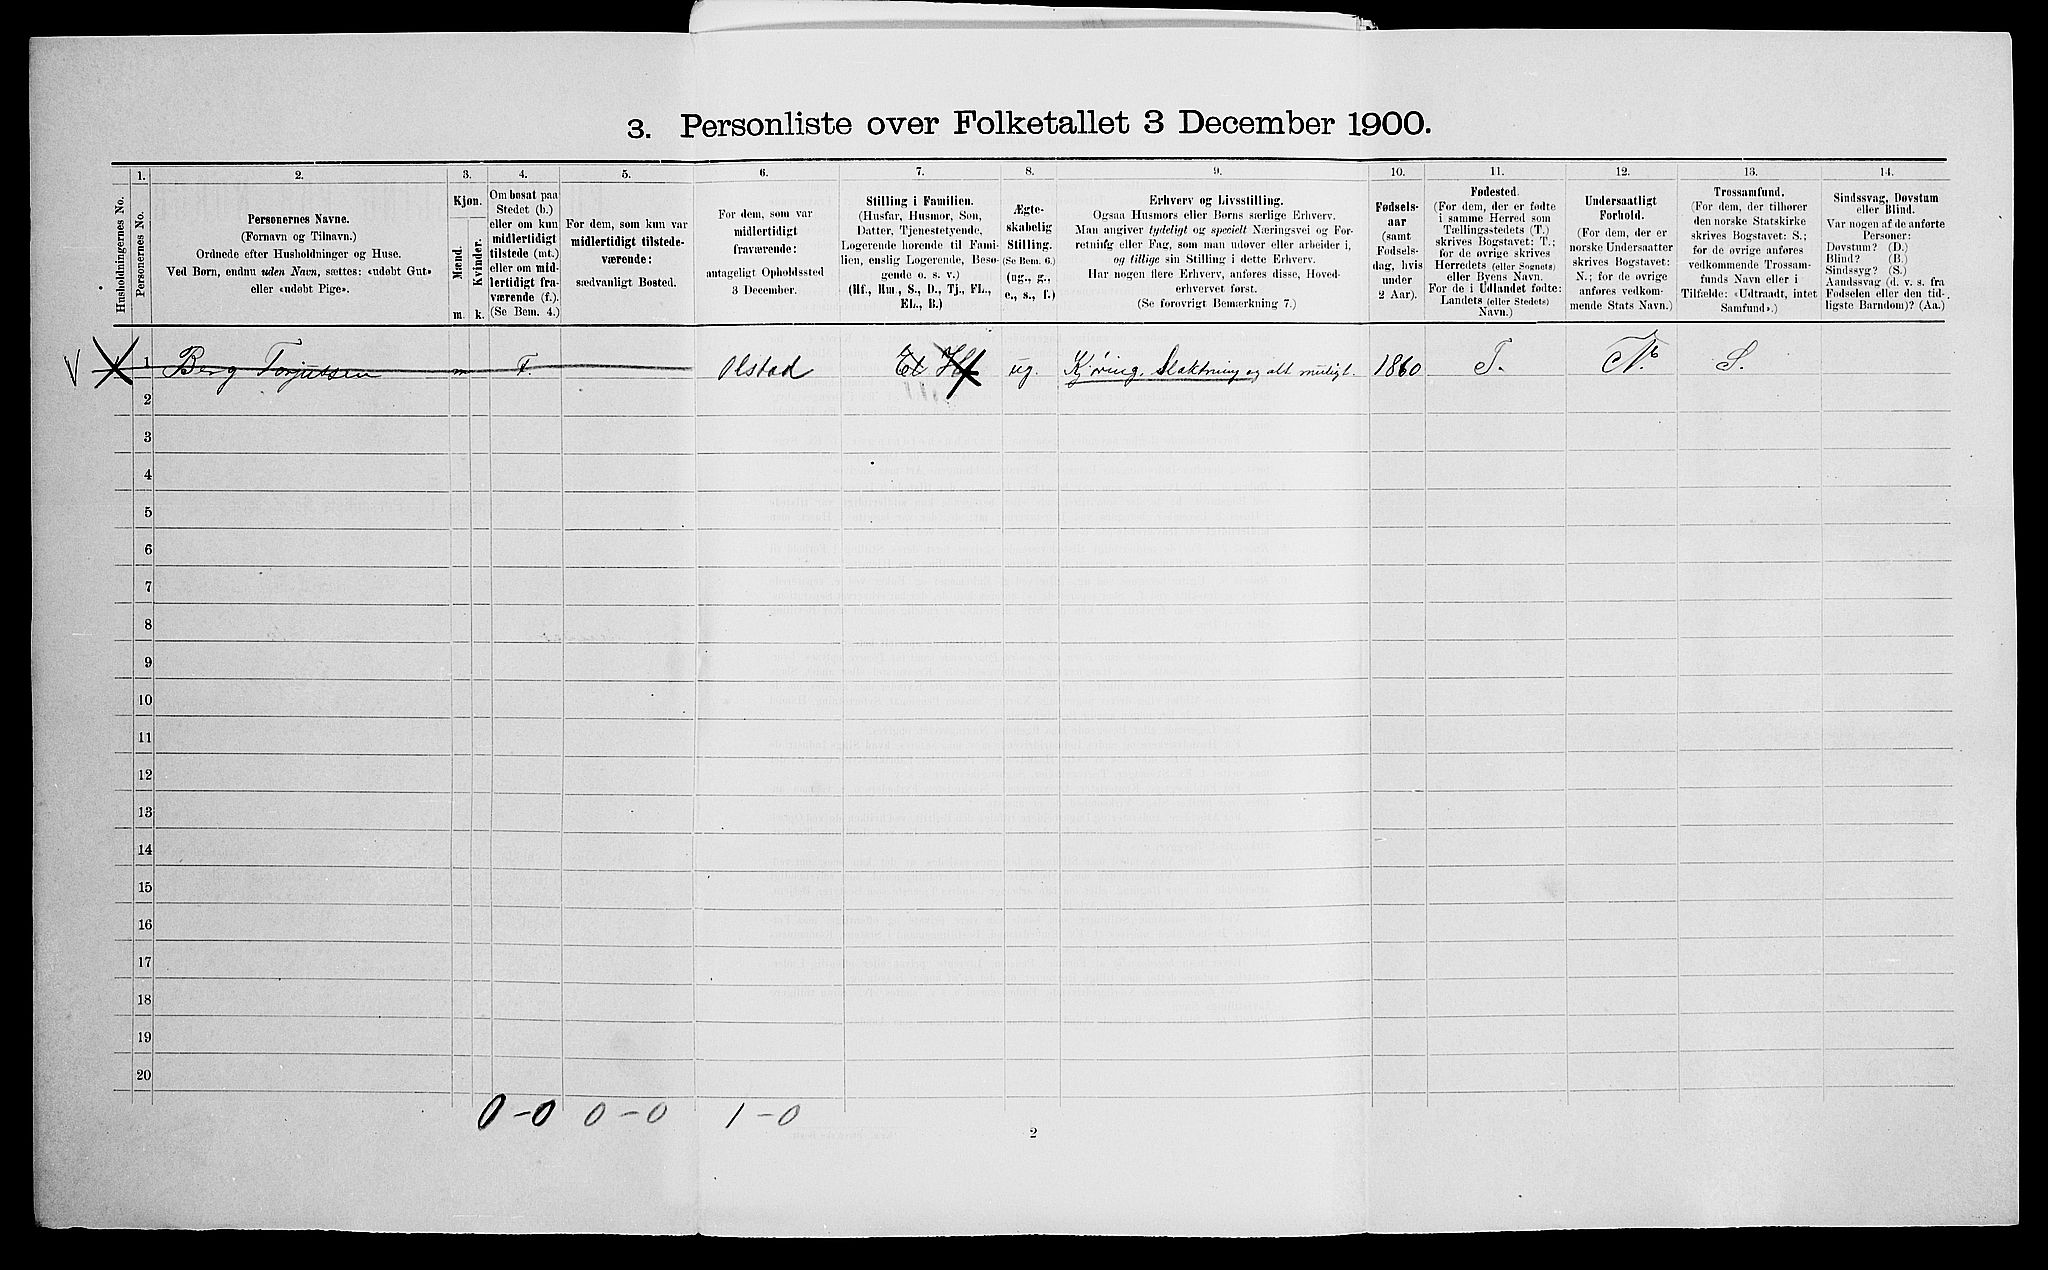 3. Personliste over Folketallet 3 December 1900.
Husholdningernes No.
1.
Personernes No.
2.
Personernes Navne.
(Fornavn og Tilnavn.)
Ordnede efter Husholdninger og Huse.
Ved Børn, endnu uden Navn, sættes: «udøbt Gut»
eller «udøbt Pige».
3.
Kjøn.
Mænd.
Kvinder.
m.
k.
4.
Om bosat paa
Stedet (b.)
eller om kun
midlertidigt
tilstede (mt.)
eller om mid-
lertidigt fra-
værende (f.).
(Se Bem. 4.)
5.
For dem, som kun var
midlertidigt tilstede-
værende:
sædvanligt Bosted.
6.
For dem, som var
midlertidigt
fraværende:
antageligt Opholdssted
3 December.
7.
Stilling i Familien.
(Husfar, Husmor, Søn,
Datter, Tjenestetyende,
Logerende hørende til Fami-
lien, enslig Logerende, Besø-
gende o. s. v.)
(Hf., Hm., S., D., Tj., FL.,
EL., B.)
8.
Ægte-
skabelig
Stilling.
(Se Bem. 6.)
(ug., g.,
e., s., f.)
9.
Erhverv og Livsstilling.
Ogsaa Husmors eller Børns særlige Erhverv.
Man angiver tydeligt og specielt Næringsvei og For-
retning eller Fag, som man udøver eller arbeider i,
og tillige sin Stilling i dette Erhverv.
Har nogen flere Erhverv, anføres disse, Hoved-
erhvervet først.
(Se forøvrigt Bemærkning 7.)
10.
Fødsels-
aar
(samt
Fødsels-
dag, hvis
under
2 Aar).
11.
Fødested.
(For dem, der er fødte
i samme Herred som
Tællingsstedets (T.)
skrives Bogstavet: T.;
for de øvrige skrives
Herredets (eller Sognets)
eller Byens Navn.
For de i Udlandet fødte:
Landets (eller Stedets)
Navn.)
12.
Undersaatligt
Forhold.
(For dem, der er
norske Undersaatter
skrives Bogstavet:
N.; for de øvrige
anføres vedkom-
mende Stats Navn.)
13.
Trossamfund.
(For dem, der tilhører
den norske Statskirke
skrives Bogstavet: S.;
for de øvrige anføres
vedkommende Trossam-
funds Navn eller i
Tilfælde: «Udtraadt, intet
Samfund».)
14.
Sindssvag, Døvstum
eller Blind.
Var nogen af de anførte
Personer:
Døvstum? (D.)
Blind? (B.)
Sindssyg? (S.)
Aandssvag (d. v. s. fra
Fødselen eller den tid-
ligste Barndom)? (Aa.)
1 Berg Torjussen m F. Olstad El Hf ug. Kjøring, Slaktning og alt muligt. 1860 T. N. S.
2
3
4
5
6
7
8
9
10
11
12
13
14
15
16
17
18
19
20
0-0 0-0 1-0
2